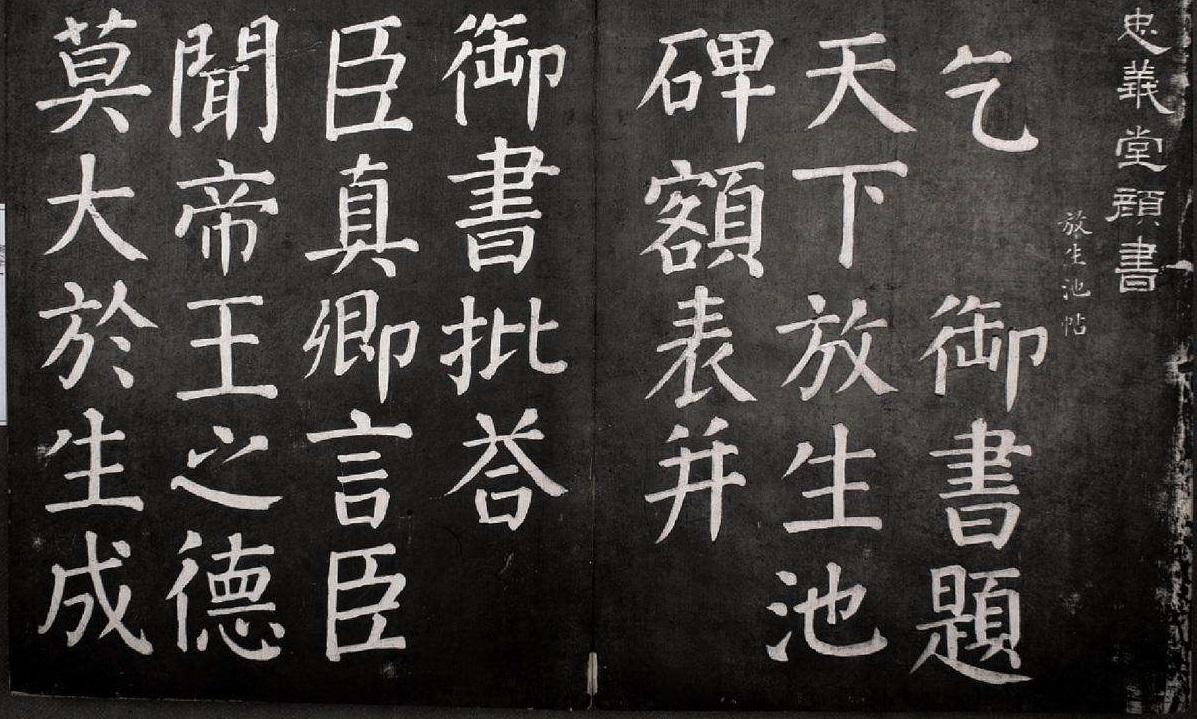 忠義堂顔書
放生池帖
乞 御書題
天下放生池
碑額表并
御書批荅
臣真卿言臣
聞帝王之德
莫大於生成